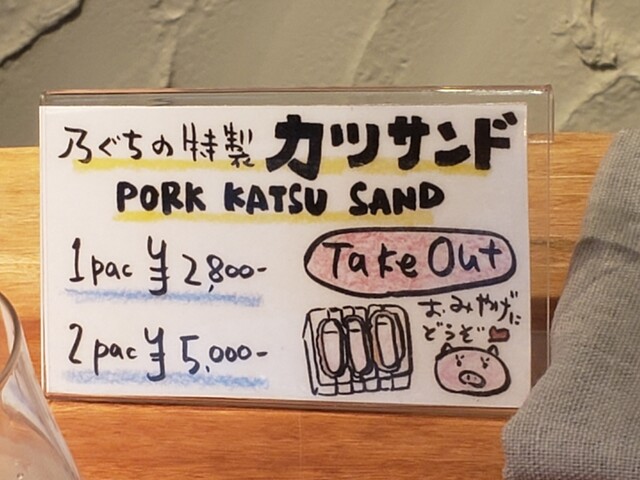 乃ぐちの特製 カツサンド
PORK KATSU SAND
1pac ¥2,800-
2pac ¥5,000-
Take Out
おみやげに
どうぞ